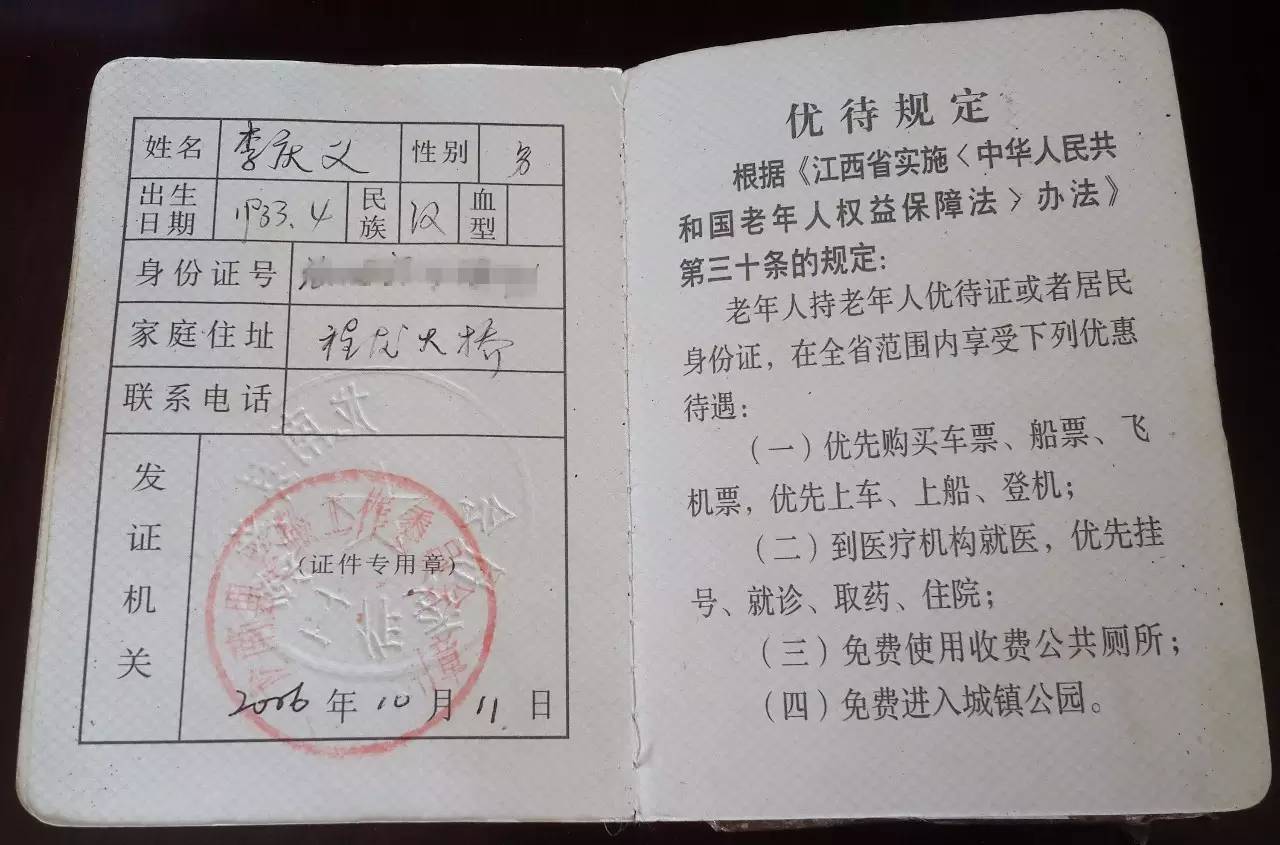 姓名 李庆文 性别 男
出生日期 1933.4 民族 汉 血型
身份证号
家庭住址 程龙大桥
联系电话
发证机关
(证件专用章)
2006年10月11日
优待规定
根据《江西省实施〈中华人民共
和国老年人权益保障法〉办法》
第三十条的规定:
老年人持老年人优待证或者居民
身份证，在全省范围内享受下列优惠
待遇:
(一)优先购买车票、船票、飞
机票，优先上车、上船、登机；
(二)到医疗机构就医，优先挂
号、就诊、取药、住院；
(三)免费使用收费公共厕所；
(四)免费进入城镇公园。